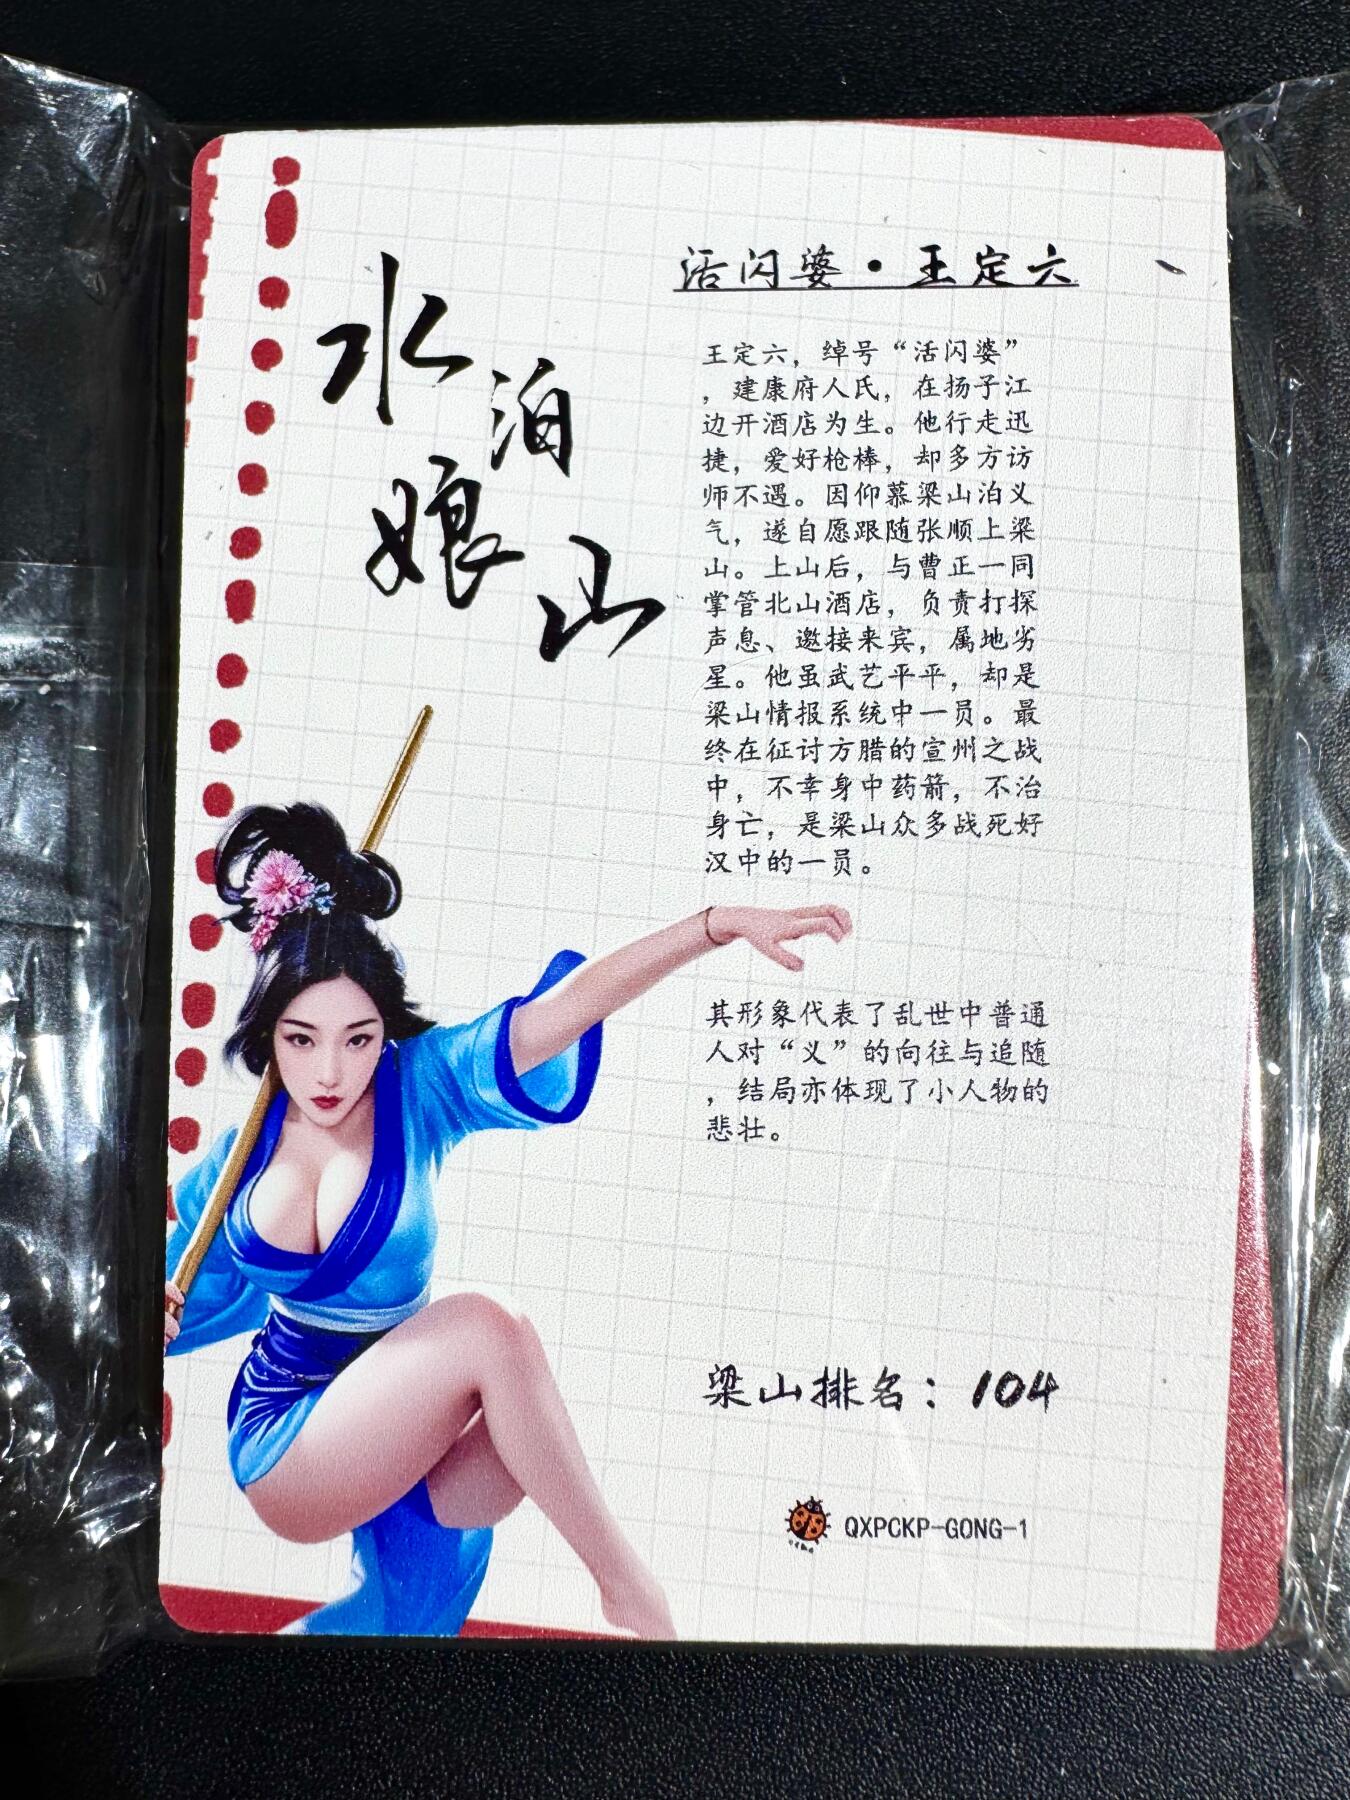 水泊
娘山
活闪婆·王定六
王定六，绰号“活闪婆”
，建康府人氏，在扬子江
边开酒店为生。他行走迅
捷，爱好枪棒，却多方访
师不遇。因仰慕梁山泊义
气，遂自愿跟随张顺上梁
山。上山后，与曹正一同
掌管北山酒店，负责打探
声息、邀接来宾，属地劣
星。他虽武艺平平，却是
梁山情报系统中一员。最
终在征讨方腊的宣州之战
中，不幸身中药箭，不治
身亡，是梁山众多战死好
汉中的一员。
其形象代表了乱世中普通
人对“义”的向往与追随
，结局亦体现了小人物的
悲壮。
梁山排名：104
QXPCKP-GONG-1